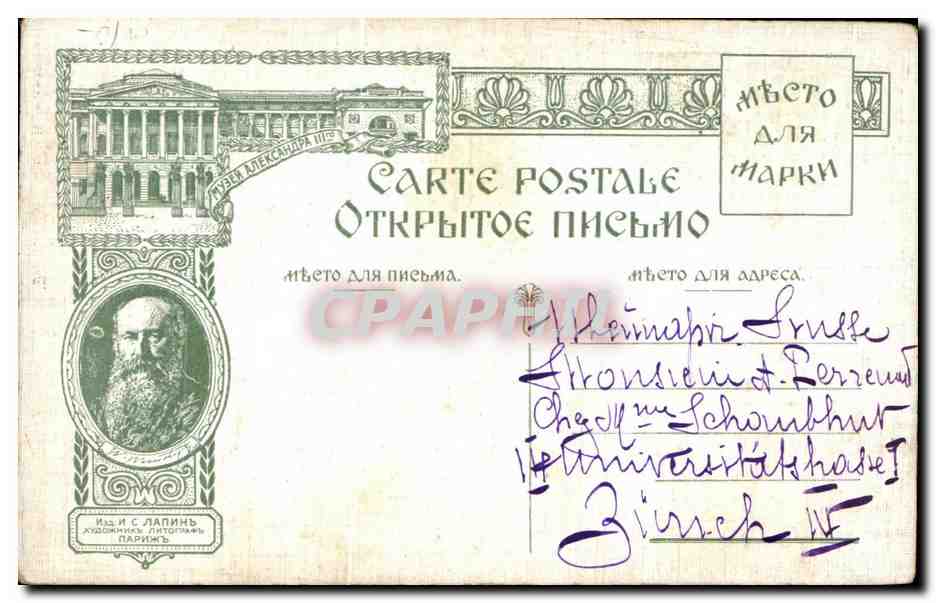 МУЗЕЙ АЛЕКСАНДРА III ГО
МѢСТО
ДЛЯ
МАРКИ
CARTE POSTALE
ОТКРЫТОЕ ПИСЬМО
МѢСТО ДЛЯ ПИСЬМА.
МѢСТО ДЛЯ АДРЕСА.
CPAPHIL
Suisse
Monsieur A. Perrenoud
Chez Mme Schaubhut
Zürich IV
Изд. И С ЛАПИНЪ
ХУДОЖНИКЪ ЛИТОГРАФЪ
ПАРИЖЪ